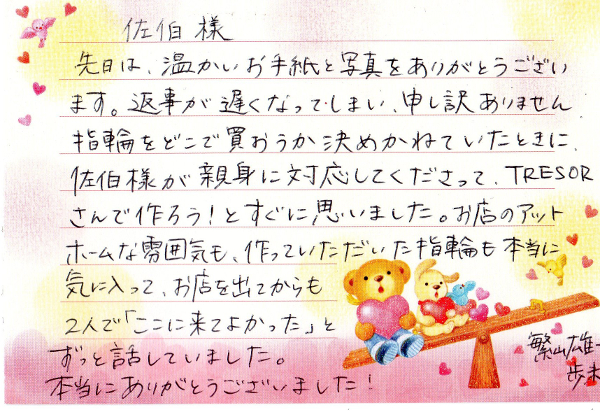 佐伯様
先日は、温かいお手紙と写真をありがとうござい
ます。返事が遅くなってしまい、申し訳ありません
指輪をどこで買おうか決めかねていたときに、
佐伯様が親身に対応してくださって、TRESOR
さんで作ろう!とすぐに思いました。お店のアット
ホームな雰囲気も、作っていただいた指輪も本当に
気に入って、お店を出てからも
2人で「ここに来てよかった」と
ずっと話していました。
本当にありがとうございました!
繁山雄一